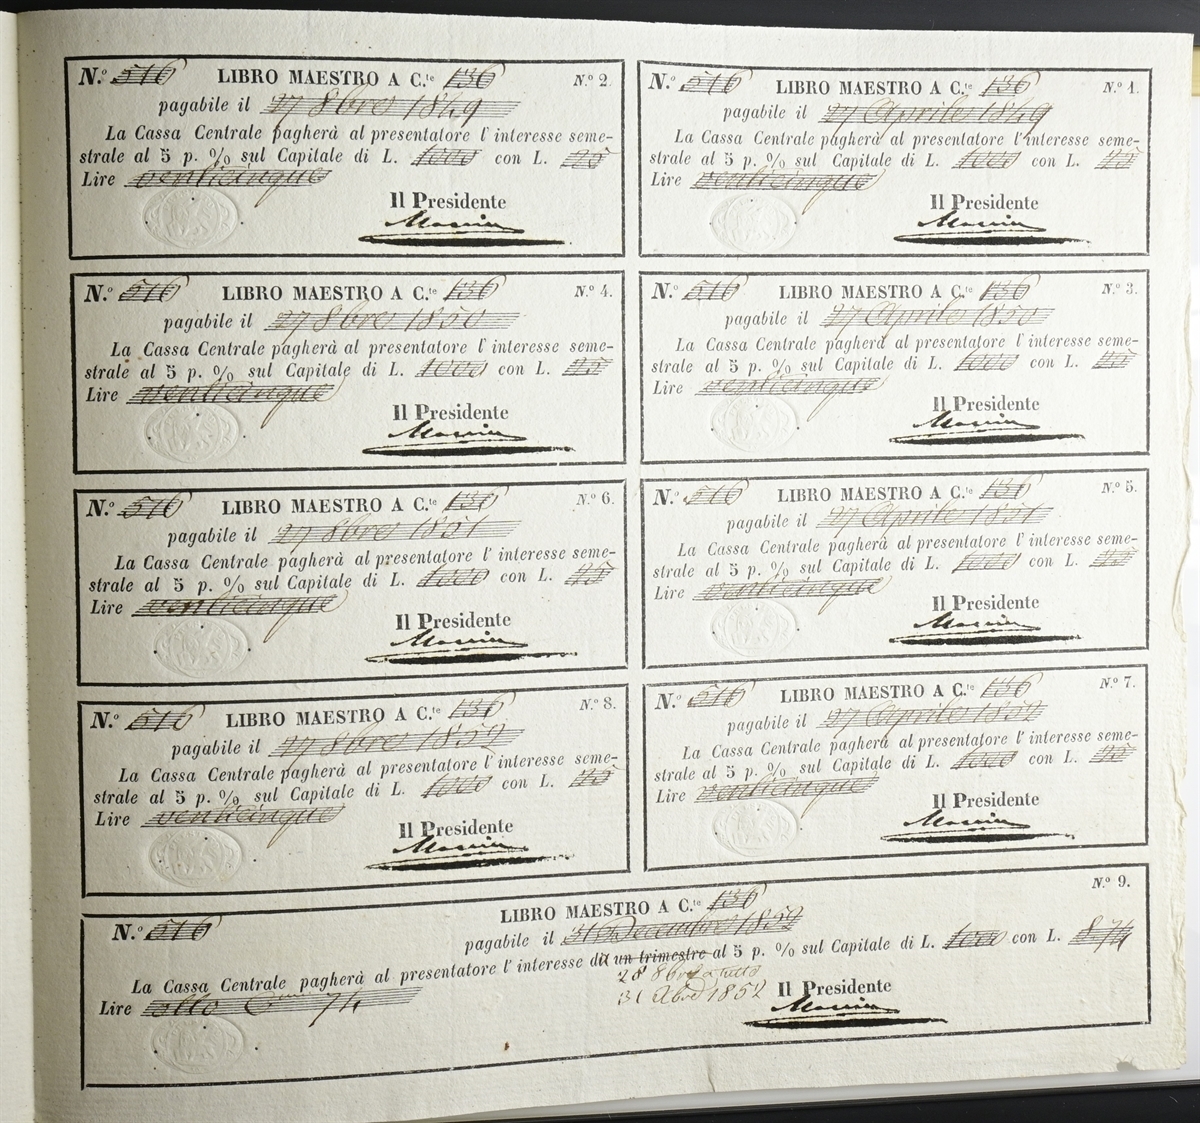 N.º 516 LIBRO MAESTRO A C.te 136 N.º 2.
pagabile il 27 8bre 1849
La Cassa Centrale pagherà al presentatore l'interesse seme-
strale al 5 p. % sul Capitale di L. 1000 con L. 25
Lire venticinque
Il Presidente
N.º 516 LIBRO MAESTRO A C.te 136 N.º 1.
pagabile il 27 Aprile 1849
La Cassa Centrale pagherà al presentatore l'interesse seme-
strale al 5 p. % sul Capitale di L. 1000 con L. 25
Lire venticinque
Il Presidente
N.º 516 LIBRO MAESTRO A C.te 136 N.º 4.
pagabile il 27 8bre 1850
La Cassa Centrale pagherà al presentatore l'interesse seme-
strale al 5 p. % sul Capitale di L. 1000 con L. 25
Lire venticinque
Il Presidente
N.º 516 LIBRO MAESTRO A C.te 136 N.º 3.
pagabile il 27 Aprile 1850
La Cassa Centrale pagherà al presentatore l'interesse seme-
strale al 5 p. % sul Capitale di L. 1000 con L. 25
Lire venticinque
Il Presidente
N.º 516 LIBRO MAESTRO A C.te 136 N.º 6.
pagabile il 27 8bre 1851
La Cassa Centrale pagherà al presentatore l'interesse seme-
strale al 5 p. % sul Capitale di L. 1000 con L. 25
Lire venticinque
Il Presidente
N.º 516 LIBRO MAESTRO A C.te 136 N.º 5.
pagabile il 27 Aprile 1851
La Cassa Centrale pagherà al presentatore l'interesse seme-
strale al 5 p. % sul Capitale di L. 1000 con L. 25
Lire venticinque
Il Presidente
N.º 516 LIBRO MAESTRO A C.te 136 N.º 8.
pagabile il 27 8bre 1852
La Cassa Centrale pagherà al presentatore l'interesse seme-
strale al 5 p. % sul Capitale di L. 1000 con L. 25
Lire venticinque
Il Presidente
N.º 516 LIBRO MAESTRO A C.te 136 N.º 7.
pagabile il 27 Aprile 1852
La Cassa Centrale pagherà al presentatore l'interesse seme-
strale al 5 p. % sul Capitale di L. 1000 con L. 25
Lire venticinque
Il Presidente
N.º 516 LIBRO MAESTRO A C.te 136 N.º 9.
pagabile il 31 Decembre 1852
La Cassa Centrale pagherà al presentatore l'interesse di un trimestre al 5 p. % sul Capitale di L. 1000 con L. 8.74
28 8bre a tutto
Lire otto C.mi 74 31 Xbre 1852 Il Presidente